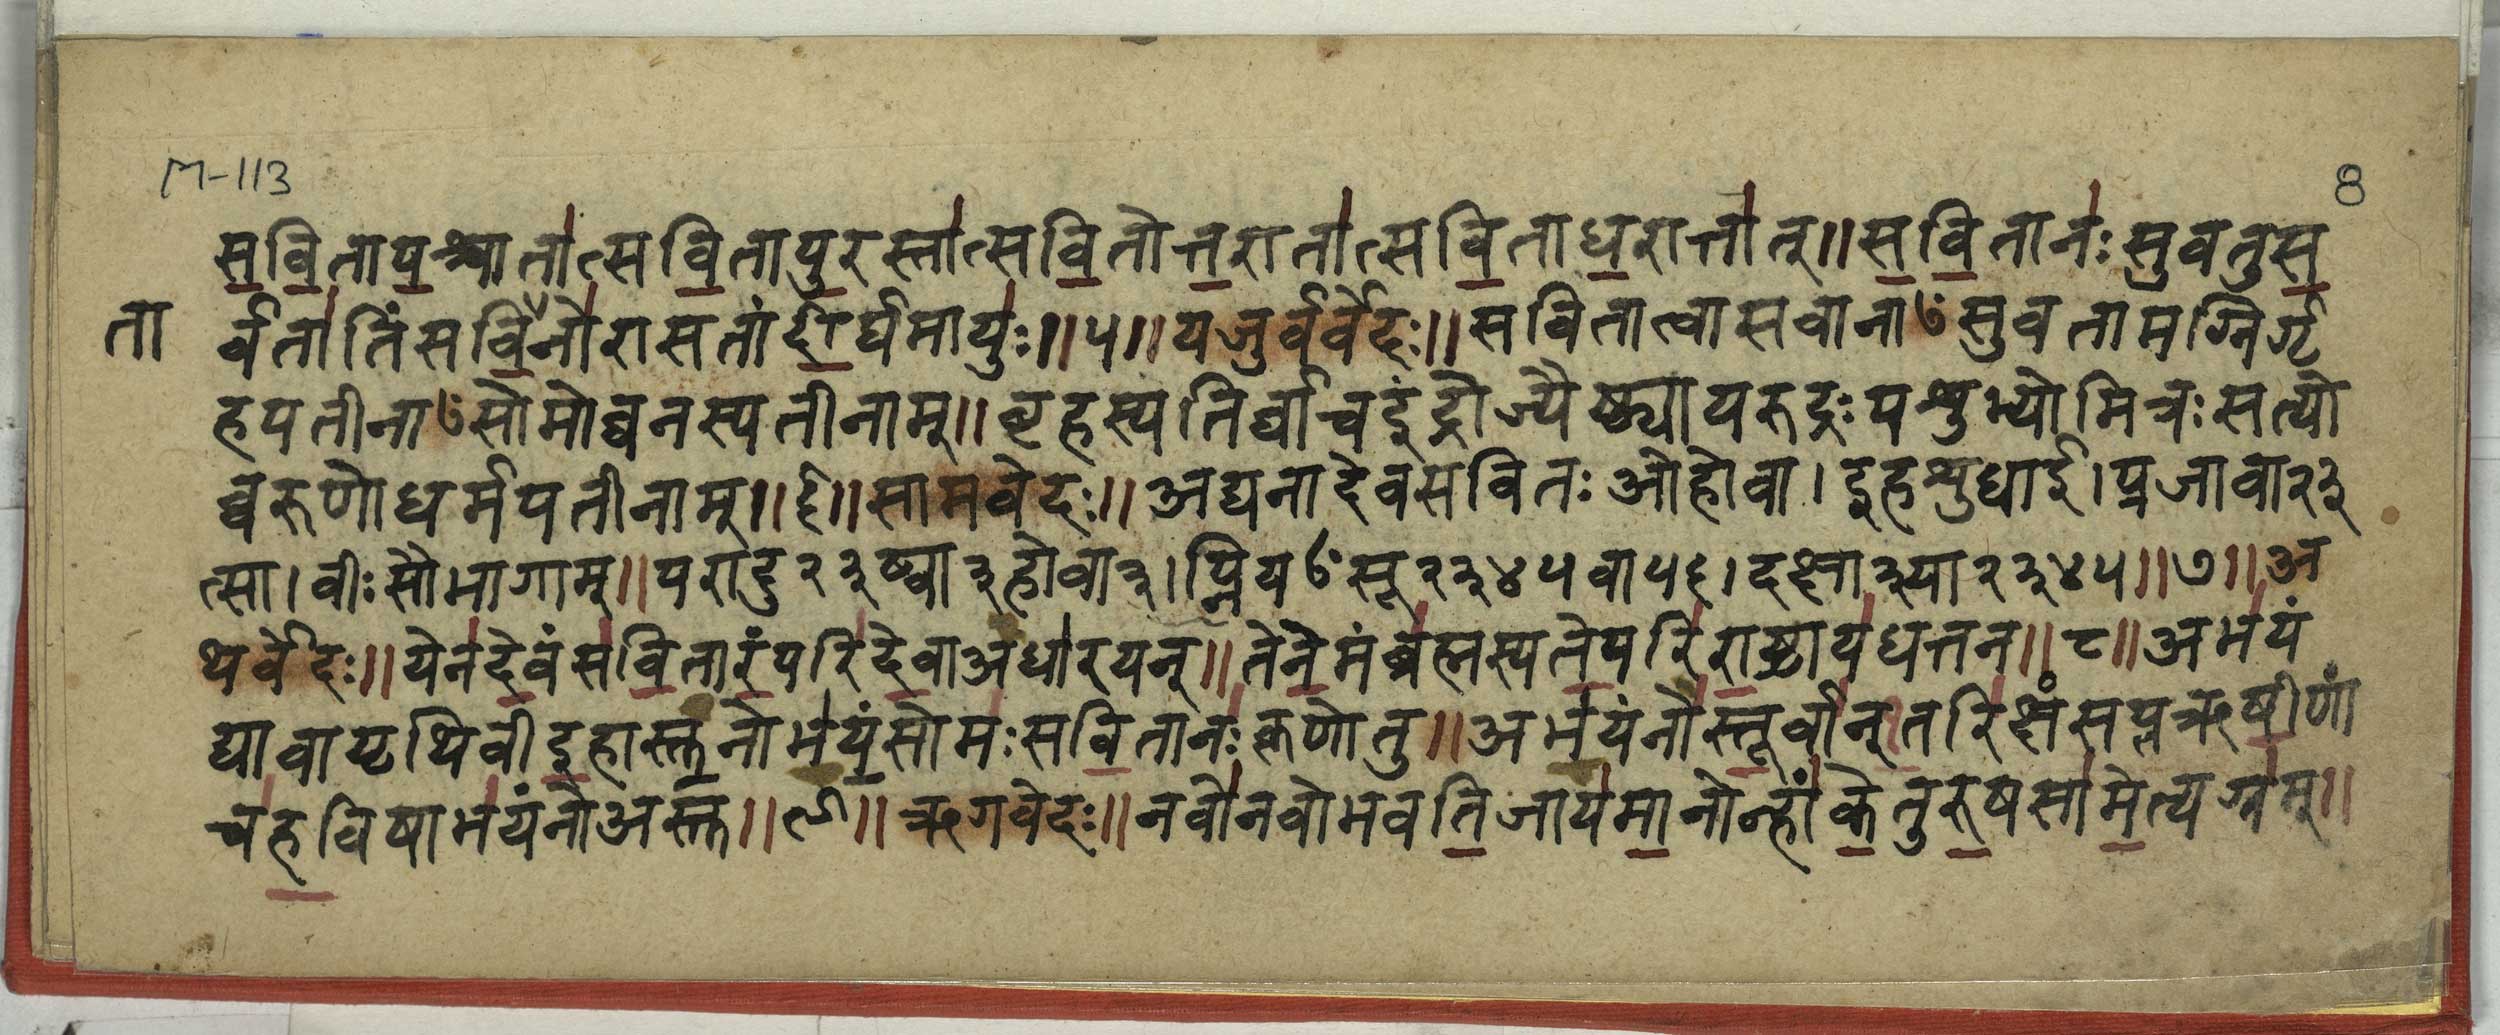 M-113
8
स॒वि॒ताप॒श्चाता॑त्सवि॒तापु॒रस्ता॑त्सवि॒तोत्त॒राता॑त्सवि॒ताध॒रात्ता॑त्॥स॒वि॒तानः॑सुवतुस॒
र्वता॑तिंसवि॒नो॑रासतांदी॒र्घमायुः॑॥५॥यजुर्वर्वेदः॥सवितात्वासवाना७ंसुवतामग्निर्गृ
ता
हपतीना७ंसोमोव्वनस्पतीनाम्॥बृहस्पतिर्व्वाचइंद्रोज्यैष्ठ्यायरुद्रःपशुभ्योमित्रःसत्यो
व्वरुणोधर्मपतीनाम्॥६॥सामवेदः॥अद्यनादेवसवितःओहोवा।इहश्रुधाई।प्रजावा२३
त्सा।वीःसौभागाम्॥परादु२३ष्वा३होवा३।प्नियꣳसू२३४५वा५६।दक्षा३या२३४५॥७॥अ
थर्वेदः॥येन॑दे॒वंस॑वि॒तारं॒परि॑दे॒वाअधा॑रयन्॥तेने॒मंब्रह्मस्पते॒परि॑रा॒ष्ट्राय॑धत्तन॥८॥अभ॑यं
द्यावापृथिवीइ॒हास्तु॒नोभ॑यं॒सोमः॑सवि॒तानः॑कृणोतु॥अभ॑यंनोस्तू॒र्वान्त॒रि॑क्षंसप्तऋषी॒णां
च॑ह॒विषाभ॑यंनोअस्तु॥९॥ऋगवेदः॥नवो॑नवोभवति॒जाय॑मा॒नोन्हां॑के॒तुरु॒षसा॑मे॒त्यग्र॑म्॥